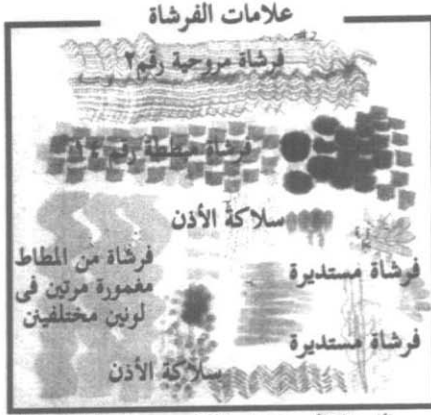 علامات الفرشاة
فرشاة مروحية رقم٢
فرشاة مبططة رقم
سلاكة الأذن
فرشاة من المطاط
مغمورة مرتين فى
لونين مختلفين
فرشاة مستديرة
فرشاة مستديرة
سلاكة الأذن